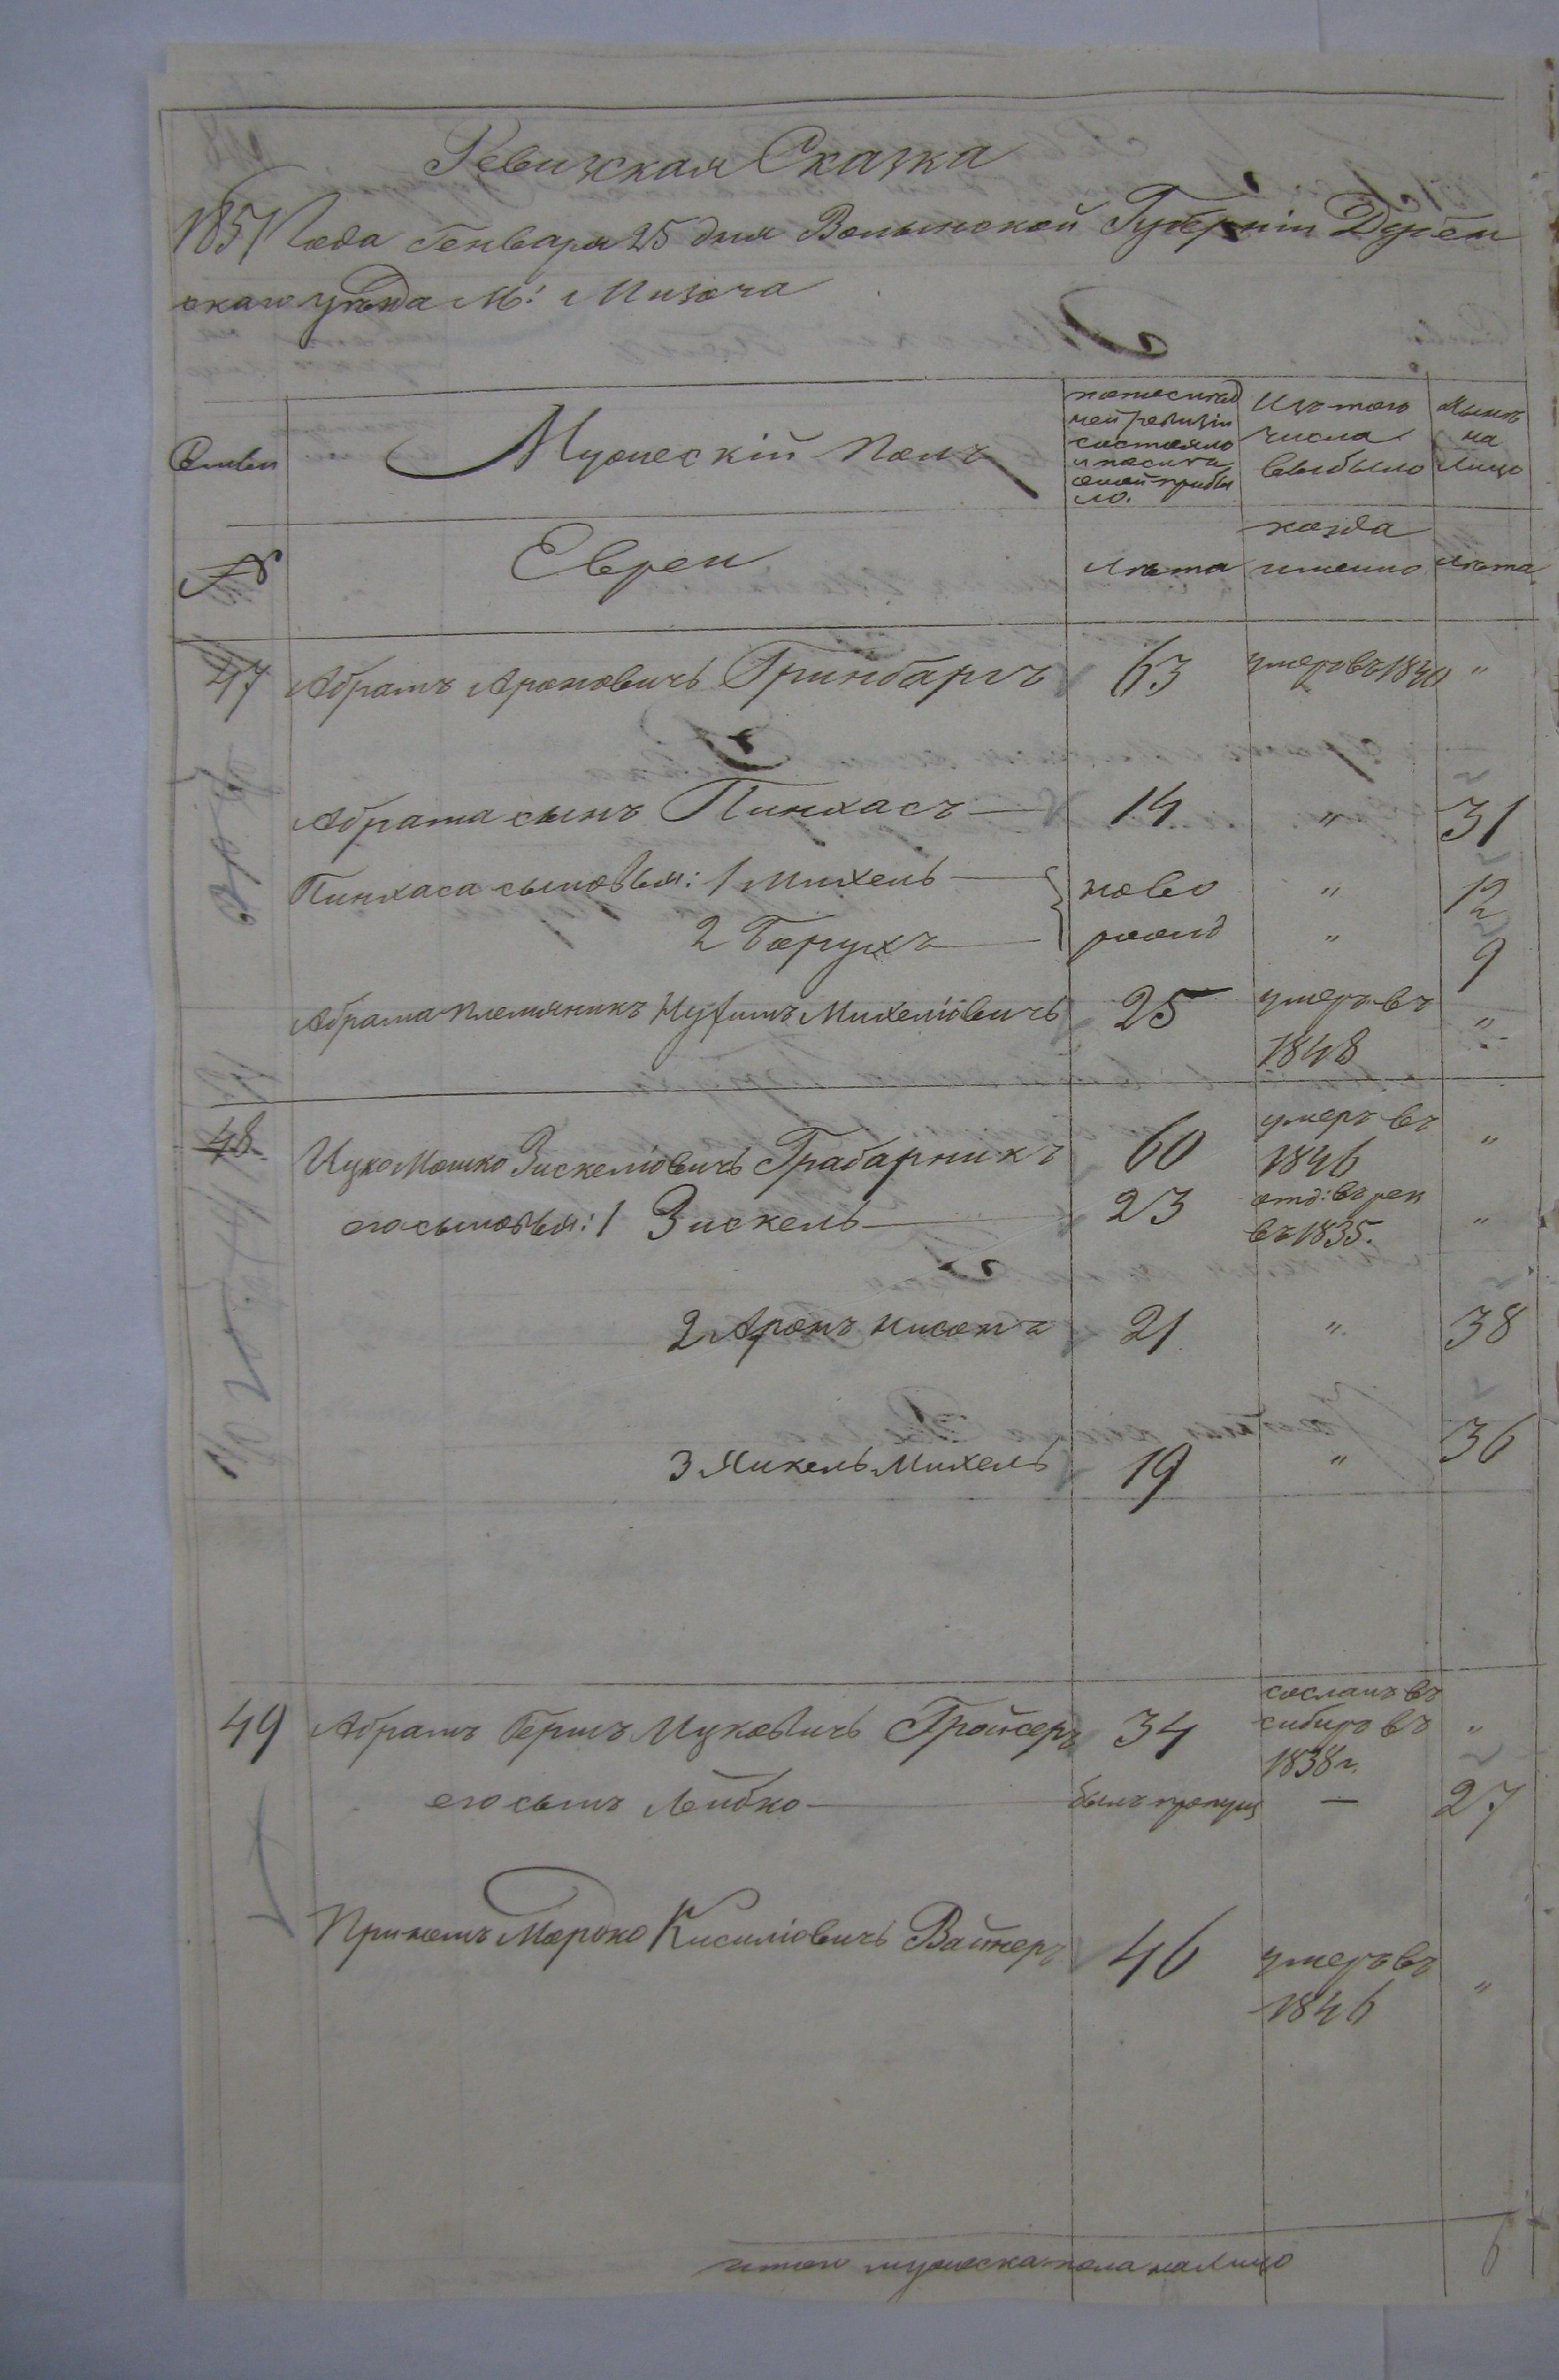 Ревижская Сказка
1851 Года Генваря 25 дня Волынской Губерніи Дубен
скаго уѣзда М: Мизоча
Семьи
Мужескій полъ
по последней ревизіи состояло и после оной прибыло.
Изъ того числа выбыло
Нынѣ на лицо
№
Евреи
лѣта
когда именно
лѣта
47 Абрамъ Ароновичъ Гринбаргъ 63 умеръ въ 1840 "
Абрама сынъ Пинхасъ — 14 " 31
Пинхаса сыновья: 1 Михель — ново " 12
2 Борухъ — рожд " 9
Абрама племянникъ Нухимъ Михеліовичъ 25 умеръ въ 1848 "
48. Ицко Мошко Зискеліовичъ Грабарникъ 60 умеръ въ 1846 "
его сыновья: 1 Зискель — 23 отд: въ рек въ 1835. "
2 Аронъ Нисонъ 21 " 38
3 Янкель Михель 19 " 36
49 Абрамъ Гершъ Ицковичъ Гройсеръ 34 сосланъ въ сибирь въ 1838 г. "
его сынъ Лейбко — былъ пропущ — 27
Примакъ Мордко Кисиліовичъ Вайнеръ 46 умеръ въ 1846 "
итого мужеска пола на лицо 6